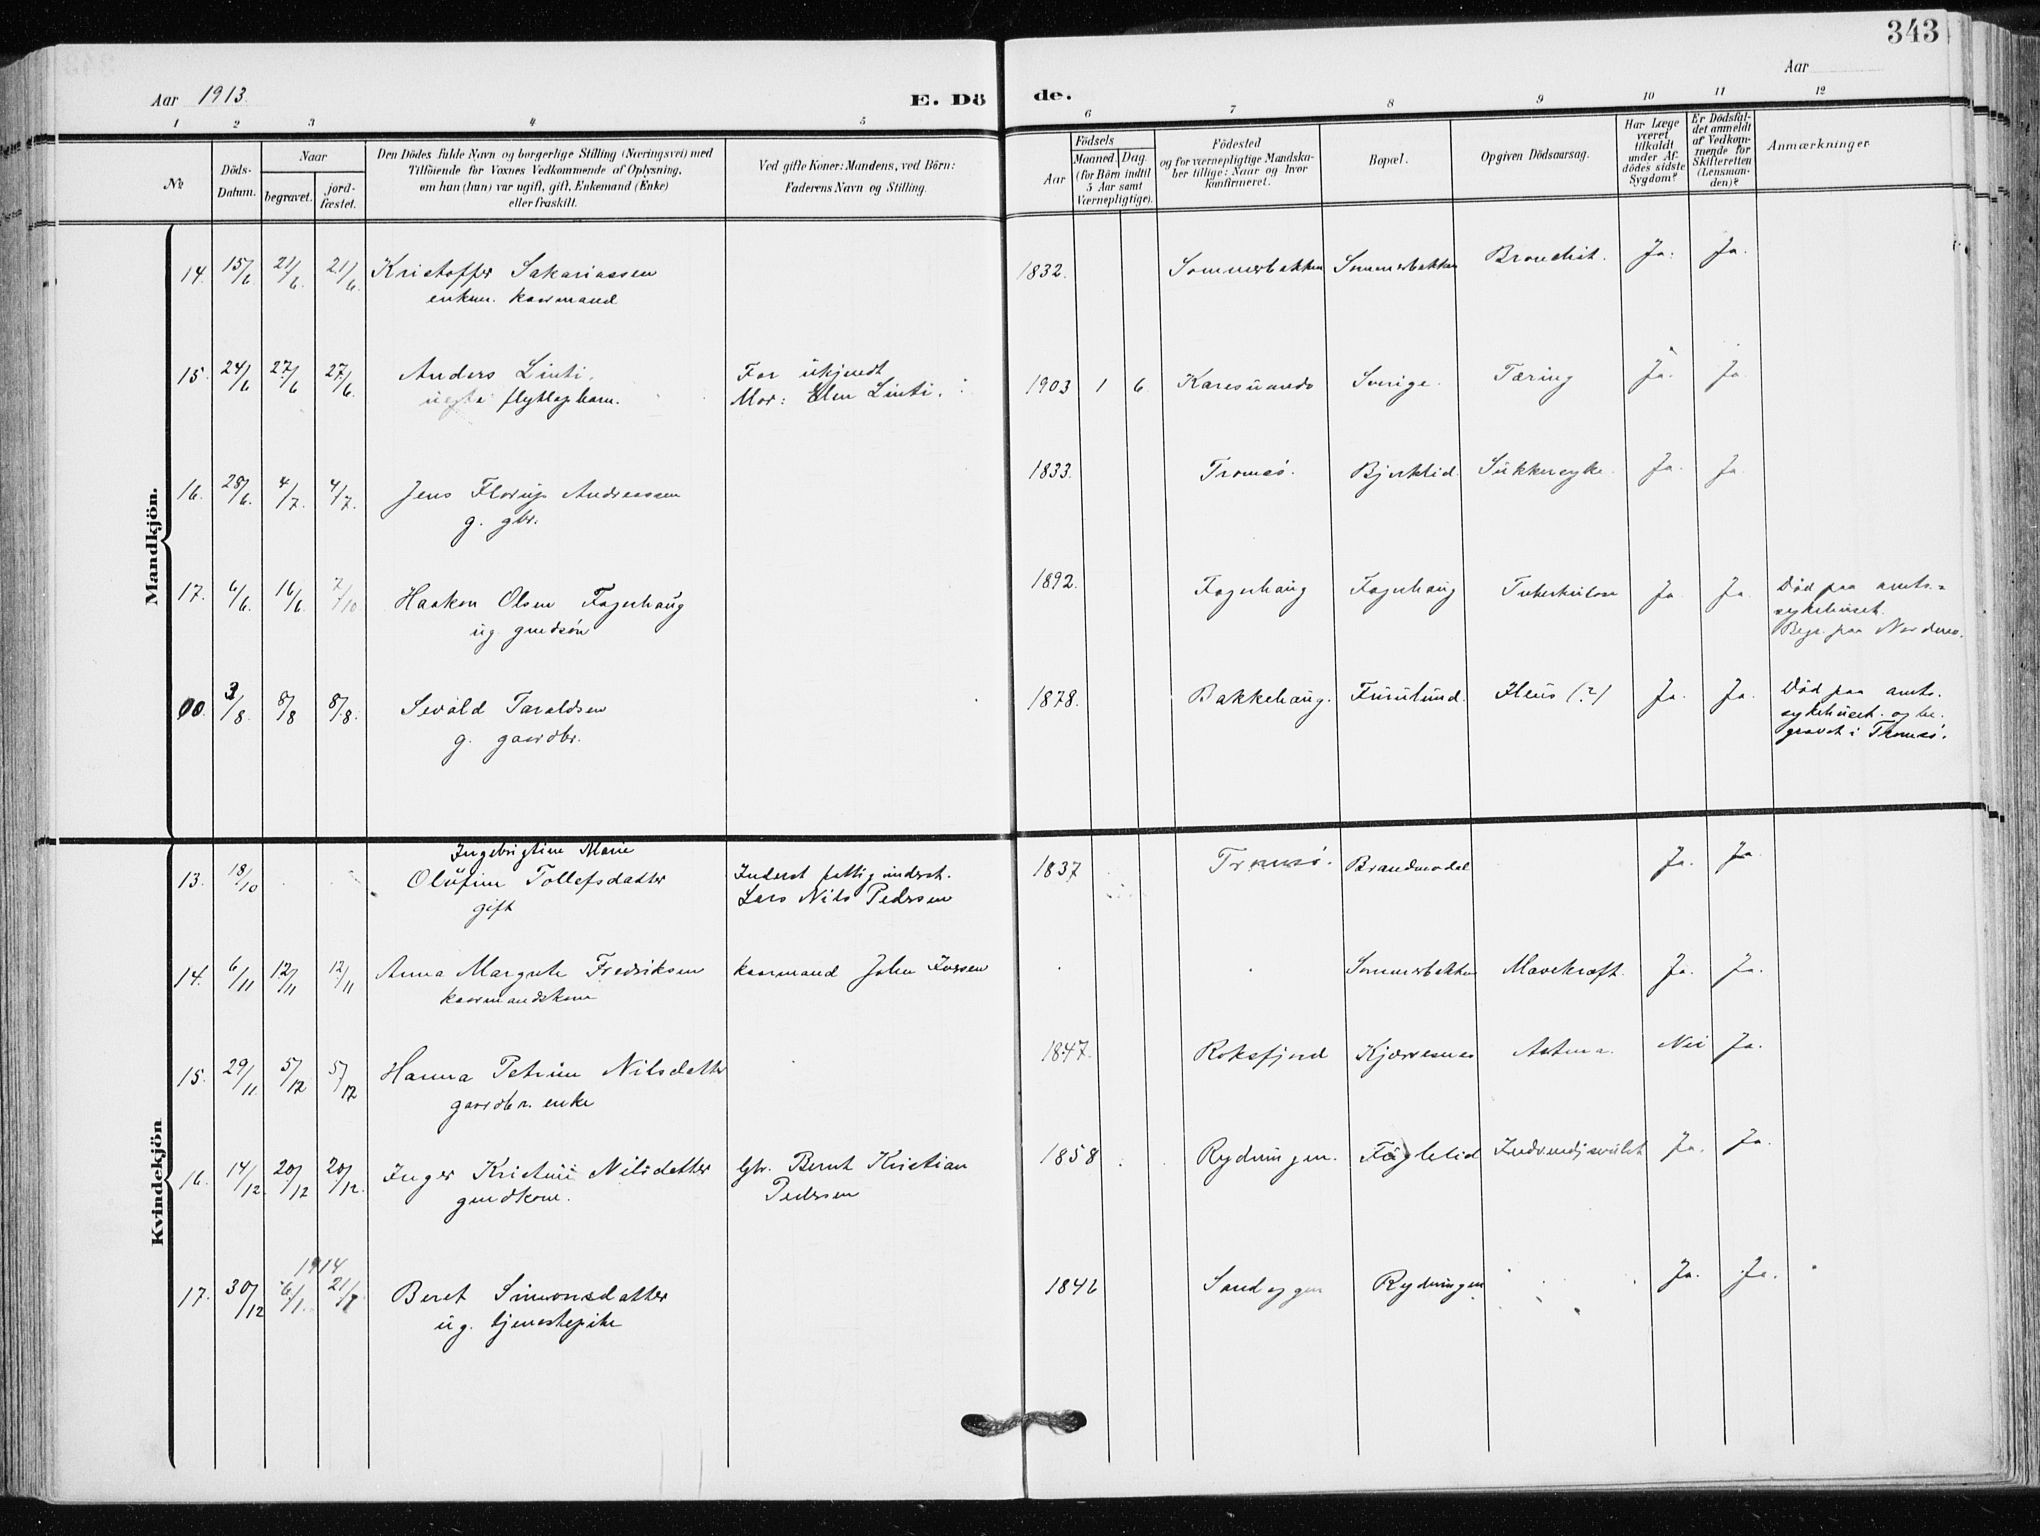 343
Aar 1913
E. Dö de.
Aar
1 2 3 4 5 6 7 8 9 10 11 12
№
Döds-
Datum.
Naar
begravet.
jord-
fæstet.
Den Dödes fulde Navn og borgerlige Stilling (Næringsvei) med
Tilföiende for Voxnes Vedkommende af Oplysning,
om han (hun) var ugift, gift, Enkemand (Enke)
eller fraskilt.
Ved gifte Koner: Mandens, ved Börn:
Faderens Navn og Stilling.
Födsels
Aar
Maaned. Dag.
(for Börn indtil
5 Aar samt
Værnepligtige).
Födested
og for værnepligtige Mandska-
ber tillige: Naar og hvor
konfirmeret.
Bopæl.
Opgiven Dödsaarsag.
Har Læge
været
tilkaldt
under Af-
dödes sidste
Sygdom?
Er Dödsfal-
det anmeldt
af Vedkom-
mende for
Skifteretten
(Lensman-
den)?
Anmærkninger
Mandkjön.
14. 15/6 21/6 21/6 Kristoffer Sakariassen 1832. Sommerbakken Sommerbakken Bronchit. Ja. Ja.
enkem. kaarmand
15. 24/6 27/6 27/6. Anders Linti, For ukjendt 1903 1 6. Karesuando Sverige. Tæring Ja. Ja.
uegte flytlapbarn. Mor: Elen Linti.
16. 28/6. 4/7. 4/7. Jens Florup Andreassen 1833. Tromsö. Bjerklid. Sukkersyke. Ja. Ja.
g. gbr.
17. 6/6. 16/6. 7/10 Haakon Olsen Fagerhaug 1892. Fagerhaug Fagerhaug Tuberkulose Ja. Ja. Död paa amts-
ug. gmdsön sykehuset.
Begr. paa
00. 3/8. 8/8 8/8. Sevald Taraldsen 1878. Bakkehaug. Furulund. Ileus (?) Ja. Ja. Död paa amts.
g. gaardbr. sykehuset. og be-
gravet i Tromsö.
Kvindekjön
Ingebrigtine Marie
13. 18/10 Olufine Tollefsdatter Inderst fattig inderst. 1837 Tromsö. Brandmodal Ja. Ja.
gift Lars Nils Pedersen
14. 6/11 12/11 12/11 Anna Margrete Fredriksen kaarmand John Iversen Sommerbakken Mavekræft. Ja. Ja.
kaarmandskone
15. 29/11 5/12 5/12 Hanna Petrine Nilsdatter 1847. Roksfjord Kjærresnes Astma. Nei Ja.
gaardbr. enke
16. 14/12. 20/12 20/12. Inger Kristine Nilsdatter Gbr. Bernt Kristian 1858 Rydningen. Fuglelid Indvendj.svulst Ja. Ja.
gmdkone. Pedersen
1914
17. 30/12 6/1. 21/7 Beret Simonsdatter 1846 Rydningen Ja. Ja.
ug. tjenestepike